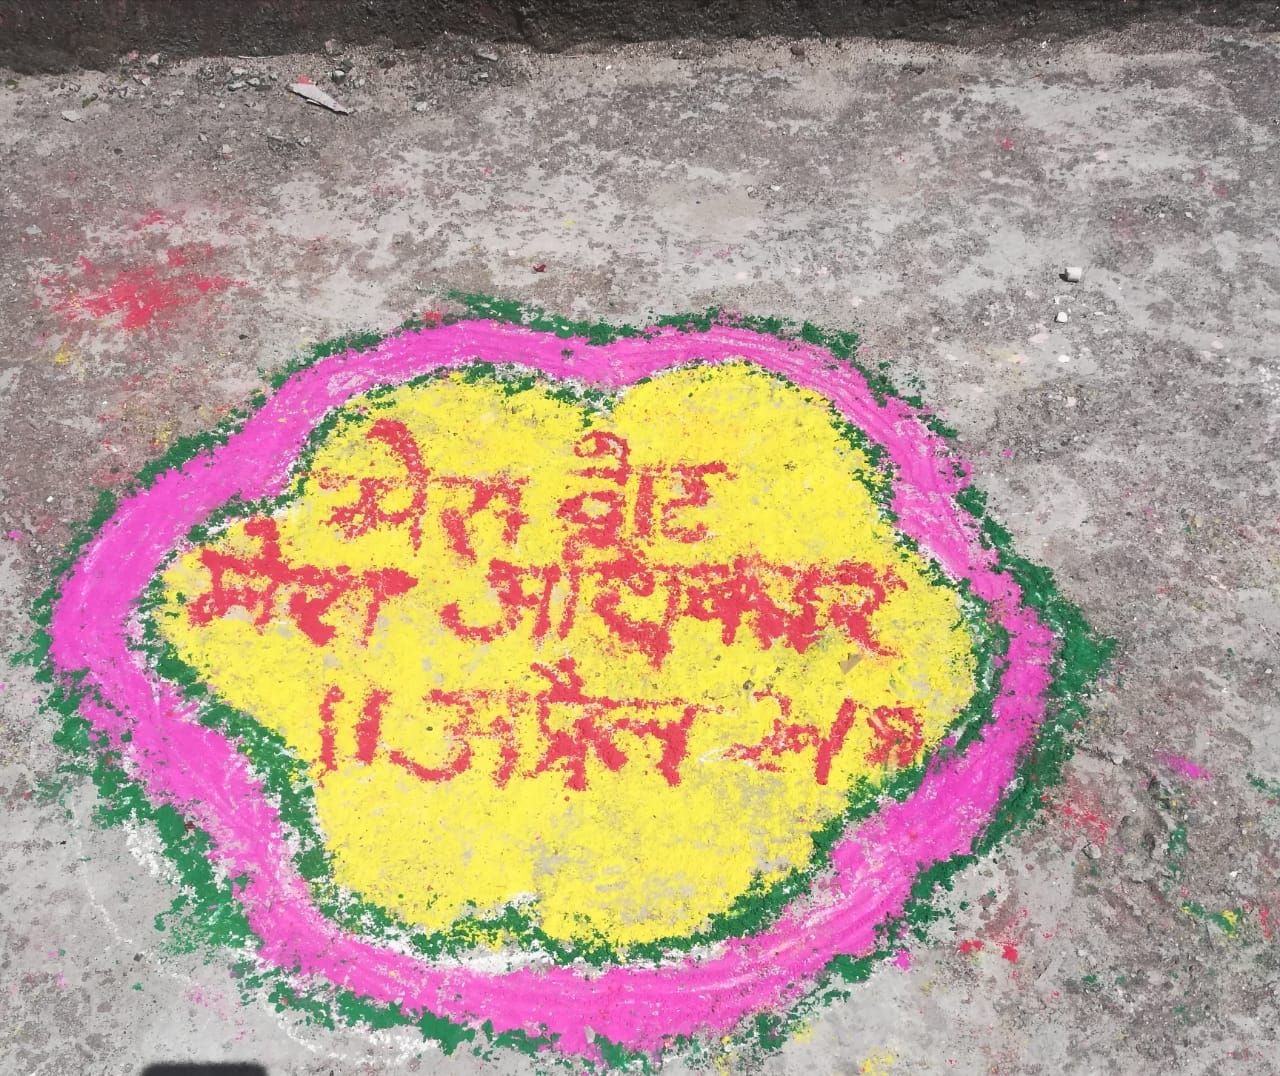 मेरा वोट
मेरा अधिकार
11 अप्रैल 2019